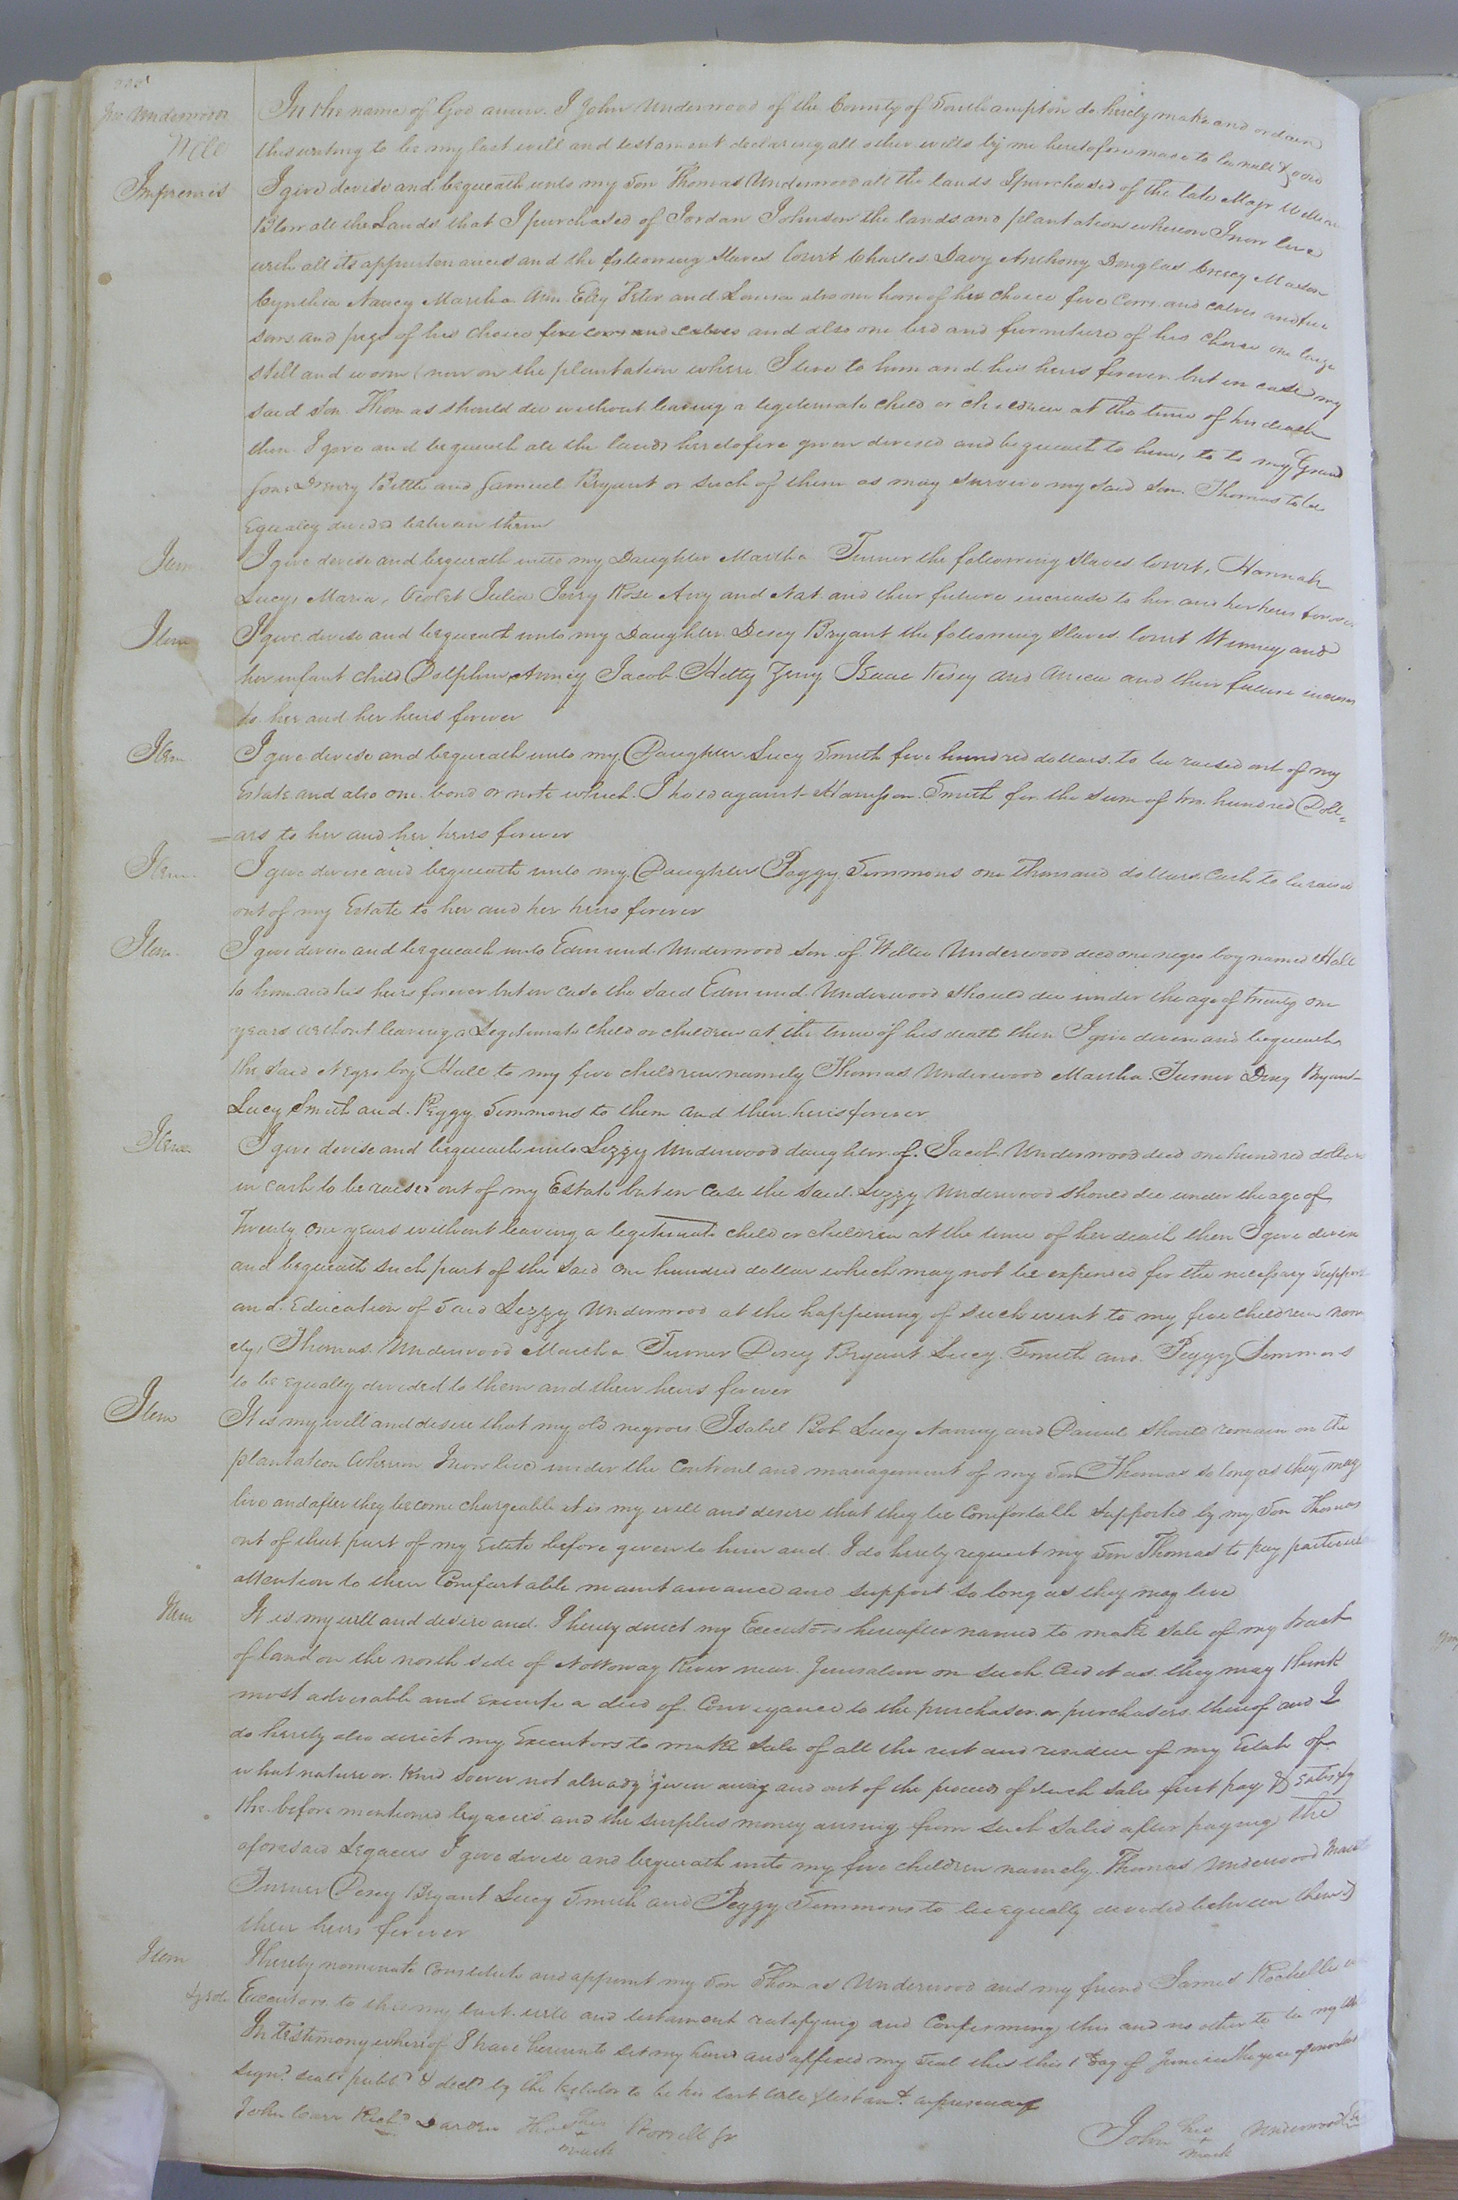 Jno. Underwood
Will
In the name of God amen. I John Underwood of the County of Southampton do hereby make and ordain
this writing to be my last will and testament declaring all other wills by me heretofore made to be null & void
Impremis I give devise and bequeath unto my Son Thomas Underwood all the lands I purchased of the late Majr William
Blow all the Lands that I purchased of Jordan Johnson the lands and plantation whereon I now live
with all its appurtenances and the following Slaves towit Charles Davy Anthony Douglas Creecy Mason
Cynthia Nancy Martha Ann Eley Peter and Louisa also one horse of his choice five Cows and calves and five
sows and pigs of his choice five cows and calves and also one bed and furniture of his choice one large
still and worm (now on the plantation where I live to him and his heirs forever but in case my
said Son Thomas should die without leaving a legitimate child or children at the time of his death
then I give and bequeath all the lands heretofore given devised and bequeath to him, to to my Grand
sons Drewry Bittle and Samuel Bryant or such of them as may survive my said Son Thomas to be
Equally divided between them
Item I give devise and bequeath unto my Daughter Martha Turner the following Slaves towit, Hannah
Lucy, Maria, Violet Julia Jerry Rose Amy and Nat and their future increase to her and her heirs forever
Item I give devise and bequeath unto my Daughter Desey Bryant the following Slaves towit Winney and
her infant child Dolphin, Anney Jacob Hetty Jerry Isaac Kesey and and their future increase
to her and her heirs forever
Item I give devise and bequeath unto my Daughter Lucy Smith five hundred dollars to be raised out of my
Estate and also one bond or note which I hold against Harrison Smith for the sum of hundred Doll=
=ars to her and her heirs forever
Item I give devise and bequeath unto my Daughter Peggy Simmons one thousand dollars Cash to be raised
out of my Estate to her and her heirs forever
Item I give devise and bequeath unto Edmund Underwood son of Willie Underwood decd one negro boy named Hall
to him and his heirs forever but in case the said Edmund Underwood should die under the age of twenty one
years without leaving a Legitimate child or children at the time of his death then I give devise and bequeath
the said Negro boy Hall to my five children namely Thomas Underwood Martha Turner Desey Bryant
Lucy Smith and Peggy Simmons to them and their heirs forever
Item I give devise and bequeath unto Lizzy Underwood daughter of Jacob Underwood decd one hundred dollars
in cash to be raised out of my Estate but in case the said Lizzy Underwood should die under the age of
Twenty one years without leaving a legitimate child or children at the time of her death then I give devise
and bequeath such part of the said one hundred dollars which may not be expended for the necessary support
and Education of said Lizzy Underwood at the happening of such event to my five children nam
ely, Thomas Underwood Martha Turner Desey Bryant Lucy Smith and Peggy Simmons
to be equally divided to them and their heirs forever
Item It is my will and desire that my old negroes Isabel Bob Lucy Nanny and Daniel should remain on the
plantation whereon I now live under the Controul and management of my Son Thomas so long as they may
live and after they become chargeable it is my will and desire that they be Comfortable supported by my Son Thomas
out of that part of my Estate before given to him and I do hereby request my Son Thomas to pay particular
attention to their Comfortable maintainance and support so long as they may live
Item It is my will and desire and I hereby direct my Executors hereafter named to make sale of my tract
of land on the north side of Nottoway River near Jerusalem on such Credit as they may think
most advisable and execute a deed of Conveyance to the purchaser or purchasers thereof and I
do hereby also direct my Executors to make sale of all the rest and residue of my Estate of
what nature or kind soever not already given away and out of the proceeds of such sale first pay & satisfy
the before mentioned legacies and the surplus money arising from such sales after paying the
aforesaid Legacies I give devise and bequeath unto my five children namely Thomas Underwood Martha
Turner Desey Bryant Lucy Smith and Peggy Simmons to be equally divided between them &
their heirs forever
Item I hereby nominate Constitute and appoint my Son Thomas Underwood and my friend James Rochelle
Executors to this my last will and testament ratifying and Confirming this and no other to be my
In testimony whereof I have hereunto set my hand and affixed my Seal this this 1 day of June in the year of our lord
Signd. seald publd & decld by the testator to be his last will & testamt. in presence of
John Carr Richd Darden his mark Jr
John his mark Underwood